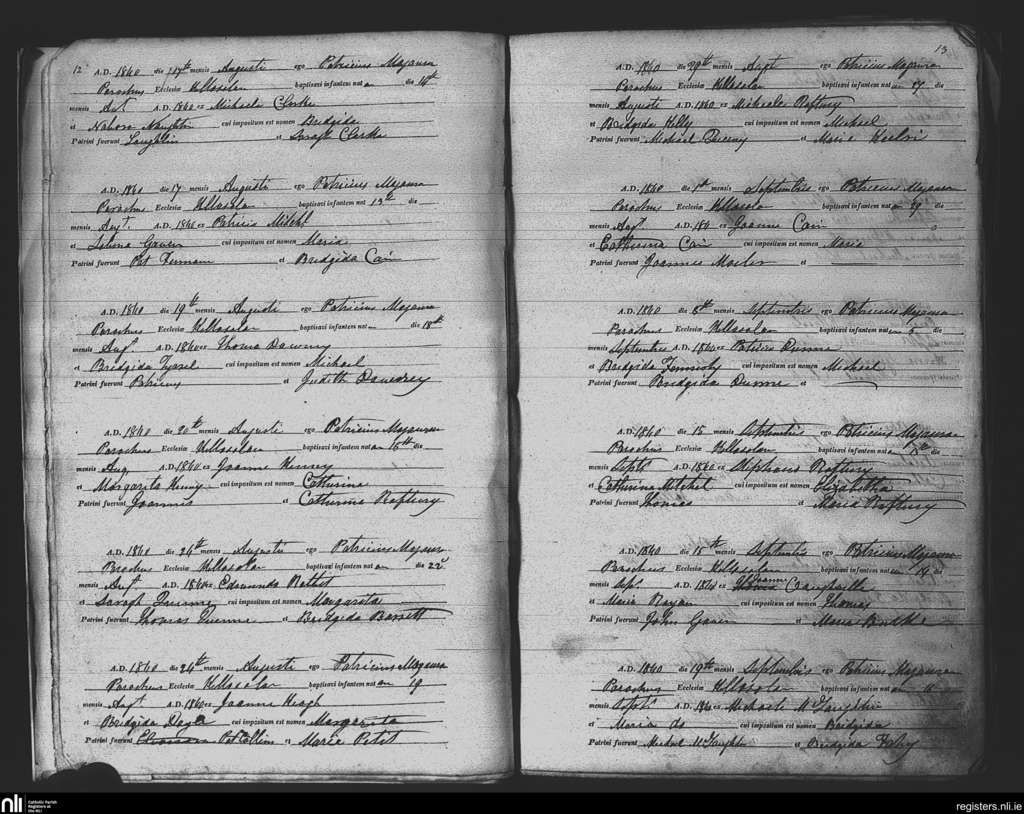 12
A.D. 1840 die 17th mensis Augusti ego Patricius Magaura
Parochus Ecclesia Killasolan baptisavi infantem nat an die 14th
mensis Aut A.D. 1840 ex Michaele Clorke
et Nahora Naughton cui impositum est nomen Bridgida
Patrini fuerunt Loughlin et Sarah Clorke
A.D. 1840 die 17 mensis Augusti ego Patricius Magaura
Parochus Ecclesia Killasola baptisavi infantem nat 13th die
mensis Augt. A.D. 1840 ex Patricio Mitchl
et cui impositum est nomen Maria
Patrini fuerunt Pat et Bridgida Cain
A.D. 1840 die 19th mensis Augusti ego Patricius Magaura
Parochus Ecclesia Killasolan baptisavi infantem nat an die 18th
mensis Augt. A.D. 1840 ex Thoma Downey
et Bridgida cui impositum est nomen Michael
Patrini fuerunt et Judith
A.D. 1840 die 20th mensis Augusti ego Patricius Magauran
Parochus Ecclesia Killasolan baptisavi infantem nat an 15th die
mensis Aug A.D. 1840 ex Joanne Henney
et Margarita cui impositum est nomen Catherine
Patrini fuerunt Joannis et Catherine Raftery
A.D. 1840 die 24th mensis Augusti ego Patricius Magaura
Parochus Ecclesia Killasolan baptisavi infantem nat an die 22
mensis Augt. A.D. 1840 ex Edmundo
et Sarah cui impositum est nomen Margarita
Patrini fuerunt Thomas et Bridgida Barrett
A.D. 1840 die 24th mensis Augusti ego Patricius Magaura
Parochus Ecclesia Killasolan baptisavi infantem nat an 19
mensis Augt A.D. 1840 ex Joanne Keagh
et Bridgida cui impositum est nomen Margarita
Patrini fuerunt Pat Collins et Marie Petit
13
A.D. 1840 die 29th mensis Augt ego Patricius Magauran
Parochus Ecclesia Killasolan baptisavi infantem nat an 17 die
mensis Augusti A.D. 1840 ex Michaele Raftury
et Bridgida Kelly cui impositum est nomen Michael
Patrini fuerunt Michael et Maria
A.D. 1840 die 1st mensis Septembris ego Patricius Magaura
Parochus Ecclesia Killasola baptisavi infantem nat an 29 die
mensis Augt. A.D. 184 ex Joanne Cain
et Catherina Cain cui impositum est nomen Maria
Patrini fuerunt Joannes et
A.D. 1840 die 8th mensis Septembris ego Patricius Magaura
Parochus Ecclesia Killasolan baptisavi infantem nat an 5 die
mensis Septembris A.D. 1840 ex Patricio Dunne
et Bridgida cui impositum est nomen Michael
Patrini fuerunt Bridgida Dunne et
A.D. 1840 die 15 mensis Septembris ego Patricius Magauran
Parochus Ecclesia Killasolan baptisavi infantem nat an 13th die
mensis Septr A.D. 1840 ex Stephano Raftury
et Catherina Mitchel cui impositum est nomen Elizabetha
Patrini fuerunt Thomas et Maria Raftury
A.D. 1840 die 15th mensis Septembris ego Patricius Magaura
Parochus Ecclesia Killasolan baptisavi infantem nat an 14 die
mensis Sept. A.D. 1840 ex Joanne
et Maria cui impositum est nomen Thomas
Patrini fuerunt John Gaven et Maria
A.D. 1840 die 19th mensis Septembris ego Patricius Magauran
Parochus Ecclesia Killasolan baptisavi infantem nat an 16
mensis Septr A.D. 1840 ex Michaele McLaughlin
et Maria do cui impositum est nomen Bridgida
Patrini fuerunt Michael McLaughlin et Bridgida Fahy
nli Catholic Parish Registers at the NLI
registers.nli.ie